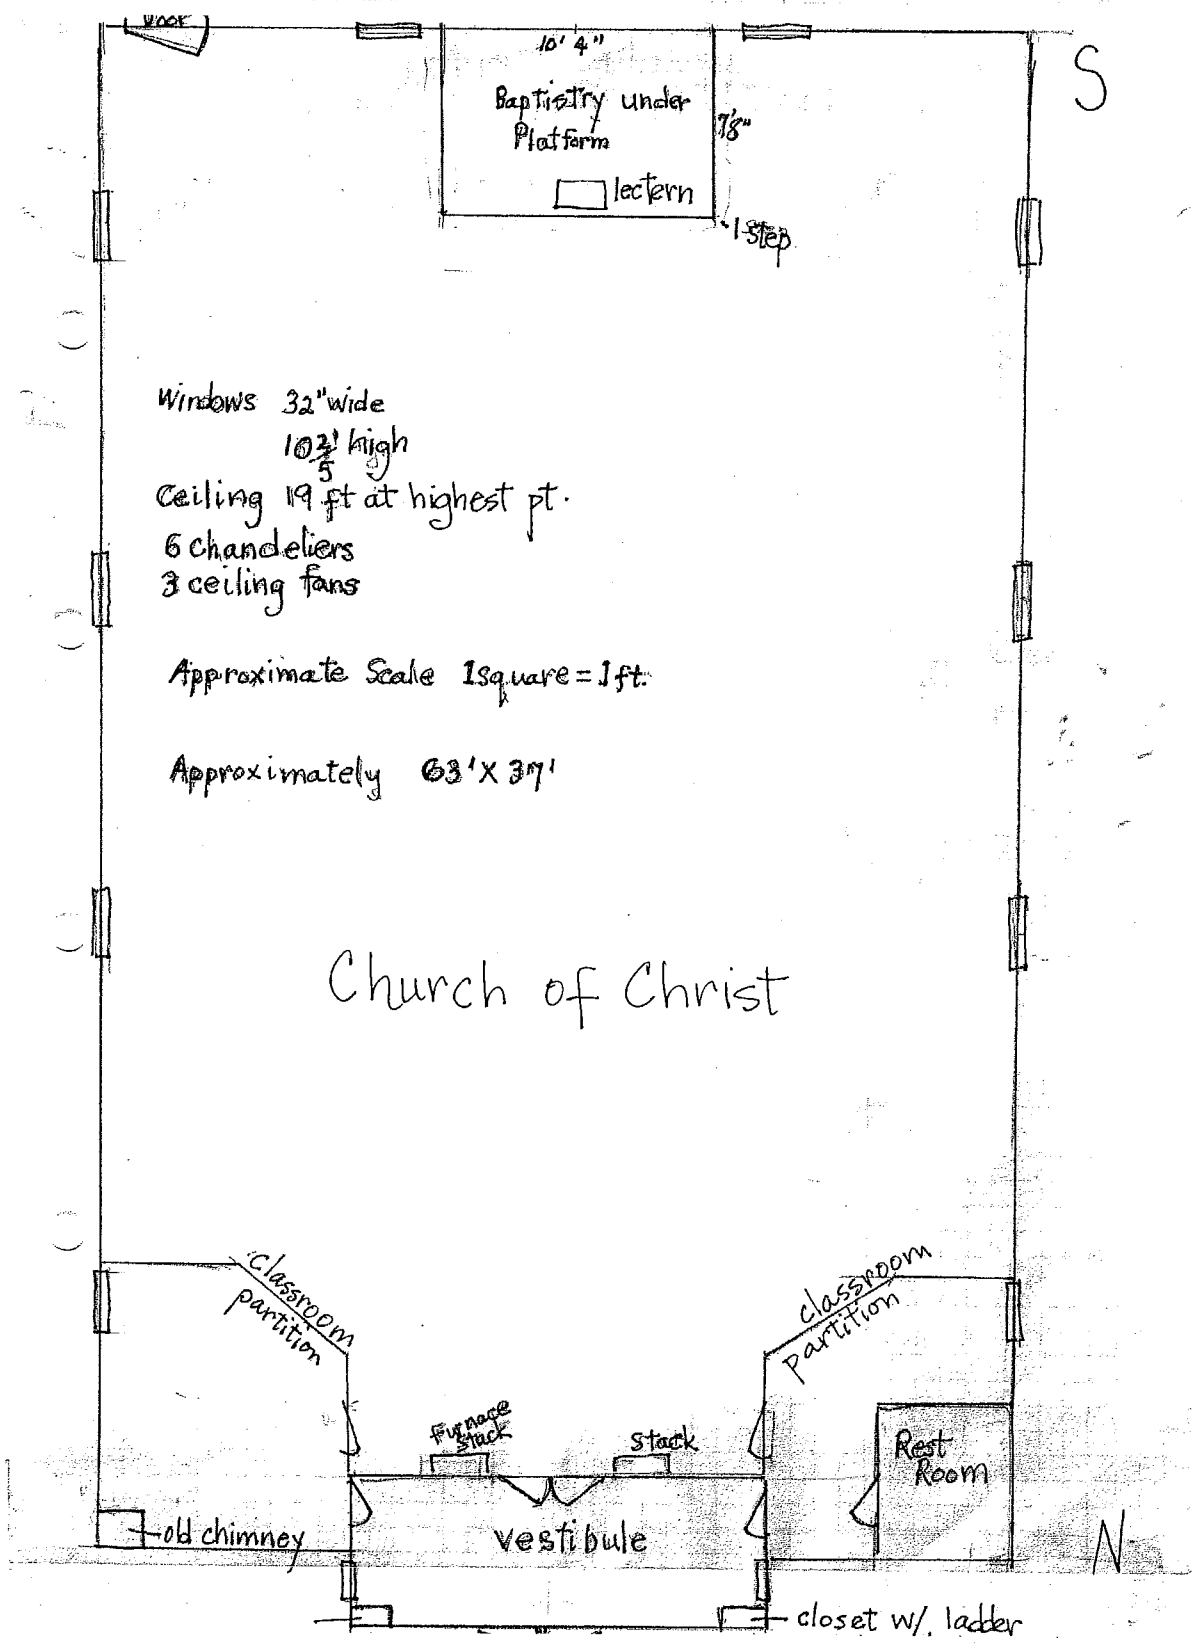 Door
10' 4"
S
Baptistry under
Platform
7'8"
lectern
1 step
Windows 32" wide
high
Ceiling 19 ft at highest pt.
6 Chandeliers
3 ceiling fans
Approximate Scale 1 square = 1 ft.
Approximately 63' X 37'
Church of Christ
Classroom
partition
classroom
partition
Furnace
stack
stack
Rest
Room
old chimney
vestibule
N
closet w/. ladder